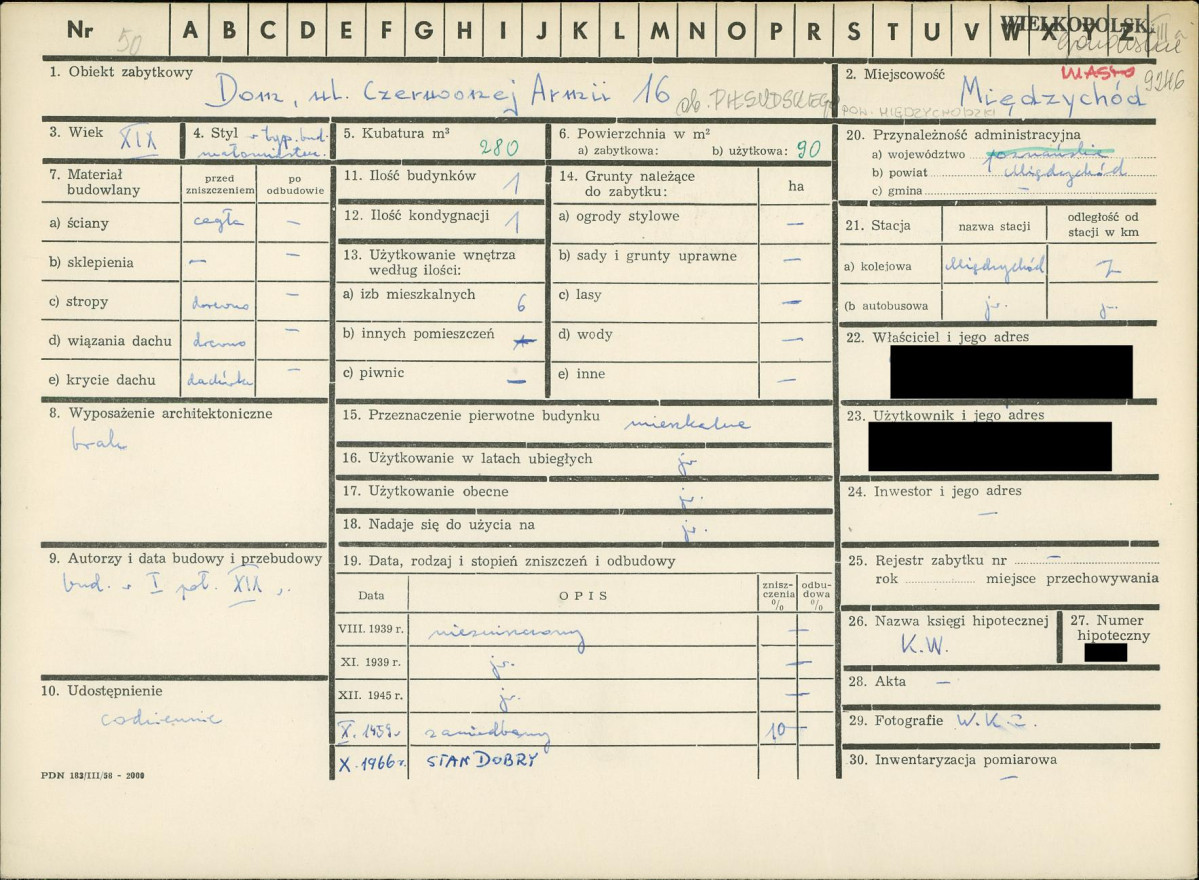 Nr 50 A B C D E F G H I J K L M N O P R S T U V W X Y Z
WIELKOPOLSK
gorzowskie
9246
1. Obiekt zabytkowy
Dom, ul. Czerwonej Armii 16 ob. PIŁSUDSKIEGO
2. Miejscowość
MIASTO
Międzychód
POW. MIĘDZYCHODZKI
3. Wiek
XIX
4. Styl typ. bud.
małomiastecz.
5. Kubatura m³
280
6. Powierzchnia w m²
a) zabytkowa: b) użytkowa: 90
7. Materiał budowlany
przed zniszczeniem
po odbudowie
a) ściany cegła —
b) sklepienia — —
c) stropy drewno —
d) wiązania dachu drewno —
e) krycie dachu dachówka —
8. Wyposażenie architektoniczne
brak
9. Autorzy i data budowy i przebudowy
bud. w I poł. XIX w.
10. Udostępnienie
codziennie
PDN 183/III/58 - 2000
11. Ilość budynków 1
12. Ilość kondygnacji 1
13. Użytkowanie wnętrza
według ilości:
a) izb mieszkalnych 6
b) innych pomieszczeń
c) piwnic —
14. Grunty należące
do zabytku:
ha
a) ogrody stylowe —
b) sady i grunty uprawne —
c) lasy —
d) wody —
e) inne —
15. Przeznaczenie pierwotne budynku mieszkalne
16. Użytkowanie w latach ubiegłych jw.
17. Użytkowanie obecne jw.
18. Nadaje się do użycia na jw.
19. Data, rodzaj i stopień zniszczeń i odbudowy
Data
OPIS
zniszczenia %
odbudowa %
VIII. 1939 r. niezniszczony —
XI. 1939 r. jw. —
XII. 1945 r. jw. —
X. 1959 r. zaniedbany 10 —
X. 1966 r. STAN DOBRY
20. Przynależność administracyjna
a) województwo poznańskie
b) powiat Międzychód
c) gmina —
21. Stacja
nazwa stacji
odległość od stacji w km
a) kolejowa Międzychód
(b autobusowa jw. jw.
22. Właściciel i jego adres
23. Użytkownik i jego adres
24. Inwestor i jego adres
—
25. Rejestr zabytku nr —
rok miejsce przechowywania
26. Nazwa księgi hipotecznej
K.W.
27. Numer
hipoteczny
28. Akta —
29. Fotografie W.K.Z.
30. Inwentaryzacja pomiarowa
—